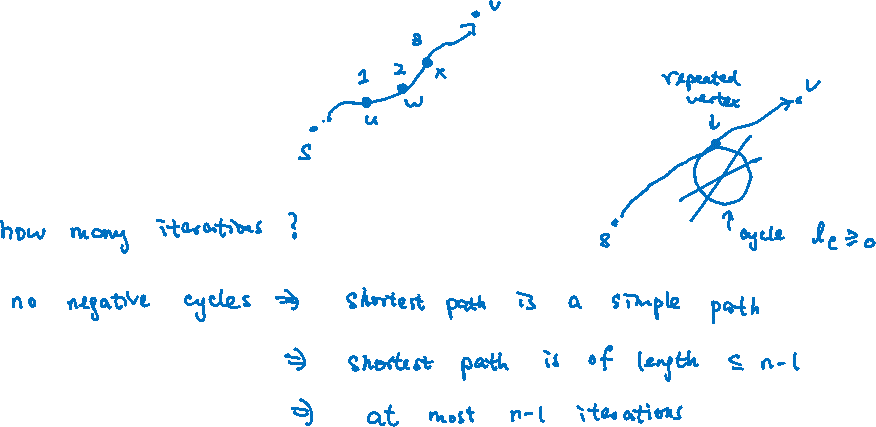 v
3
2
x
1
w
u
s
repeated
vertex
↓
v
s
↑
cycle l_c ≥ 0
how many iterations ?
no negative cycles ⇒ shortest path is a simple path
⇒ shortest path is of length ≤ n-1
⇒ at most n-1 iterations